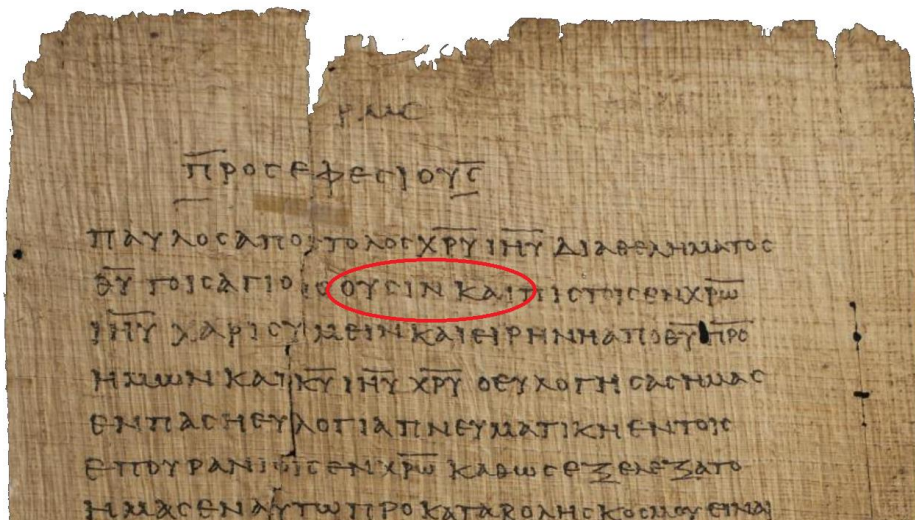 ρμϛ
ΠΡΟΣ ΕΦΕΣΙΟΥΣ
ΠΑΥΛΟΣ ΑΠΟΣΤΟΛΟΣ ΧΡΥ ΙΗΥ ΔΙΑ ΘΕΛΗΜΑΤΟΣ
ΘΥ ΤΟΙΣ ΑΓΙΟΙΣ ΟΥΣΙΝ ΚΑΙ ΠΙΣΤΟΙΣ ΕΝ ΧΡΩ
ΙΗΥ ΧΑΡΙΣ ΥΜΕΙΝ ΚΑΙ ΕΙΡΗΝΗ ΑΠΟ ΘΥ ΠΡΟ
ΗΜΩΝ ΚΑΙ ΚΥ ΙΗΥ ΧΡΥ Ο ΕΥΛΟΓΗΣΑΣ ΗΜΑΣ
ΕΝ ΠΑΣΗ ΕΥΛΟΓΙΑ ΠΝΕΥΜΑΤΙΚΗ ΕΝ ΤΟΙΣ
ΕΠΟΥΡΑΝΙΟΙΣ ΕΝ ΧΡΩ ΚΑΘΩΣ ΕΞΕΛΕΞΑΤΟ
ΗΜΑΣ ΕΝ ΑΥΤΩ ΠΡΟ ΚΑΤΑΒΟΛΗΣ ΚΟΣΜΟΥ ΕΙΝΑΙ